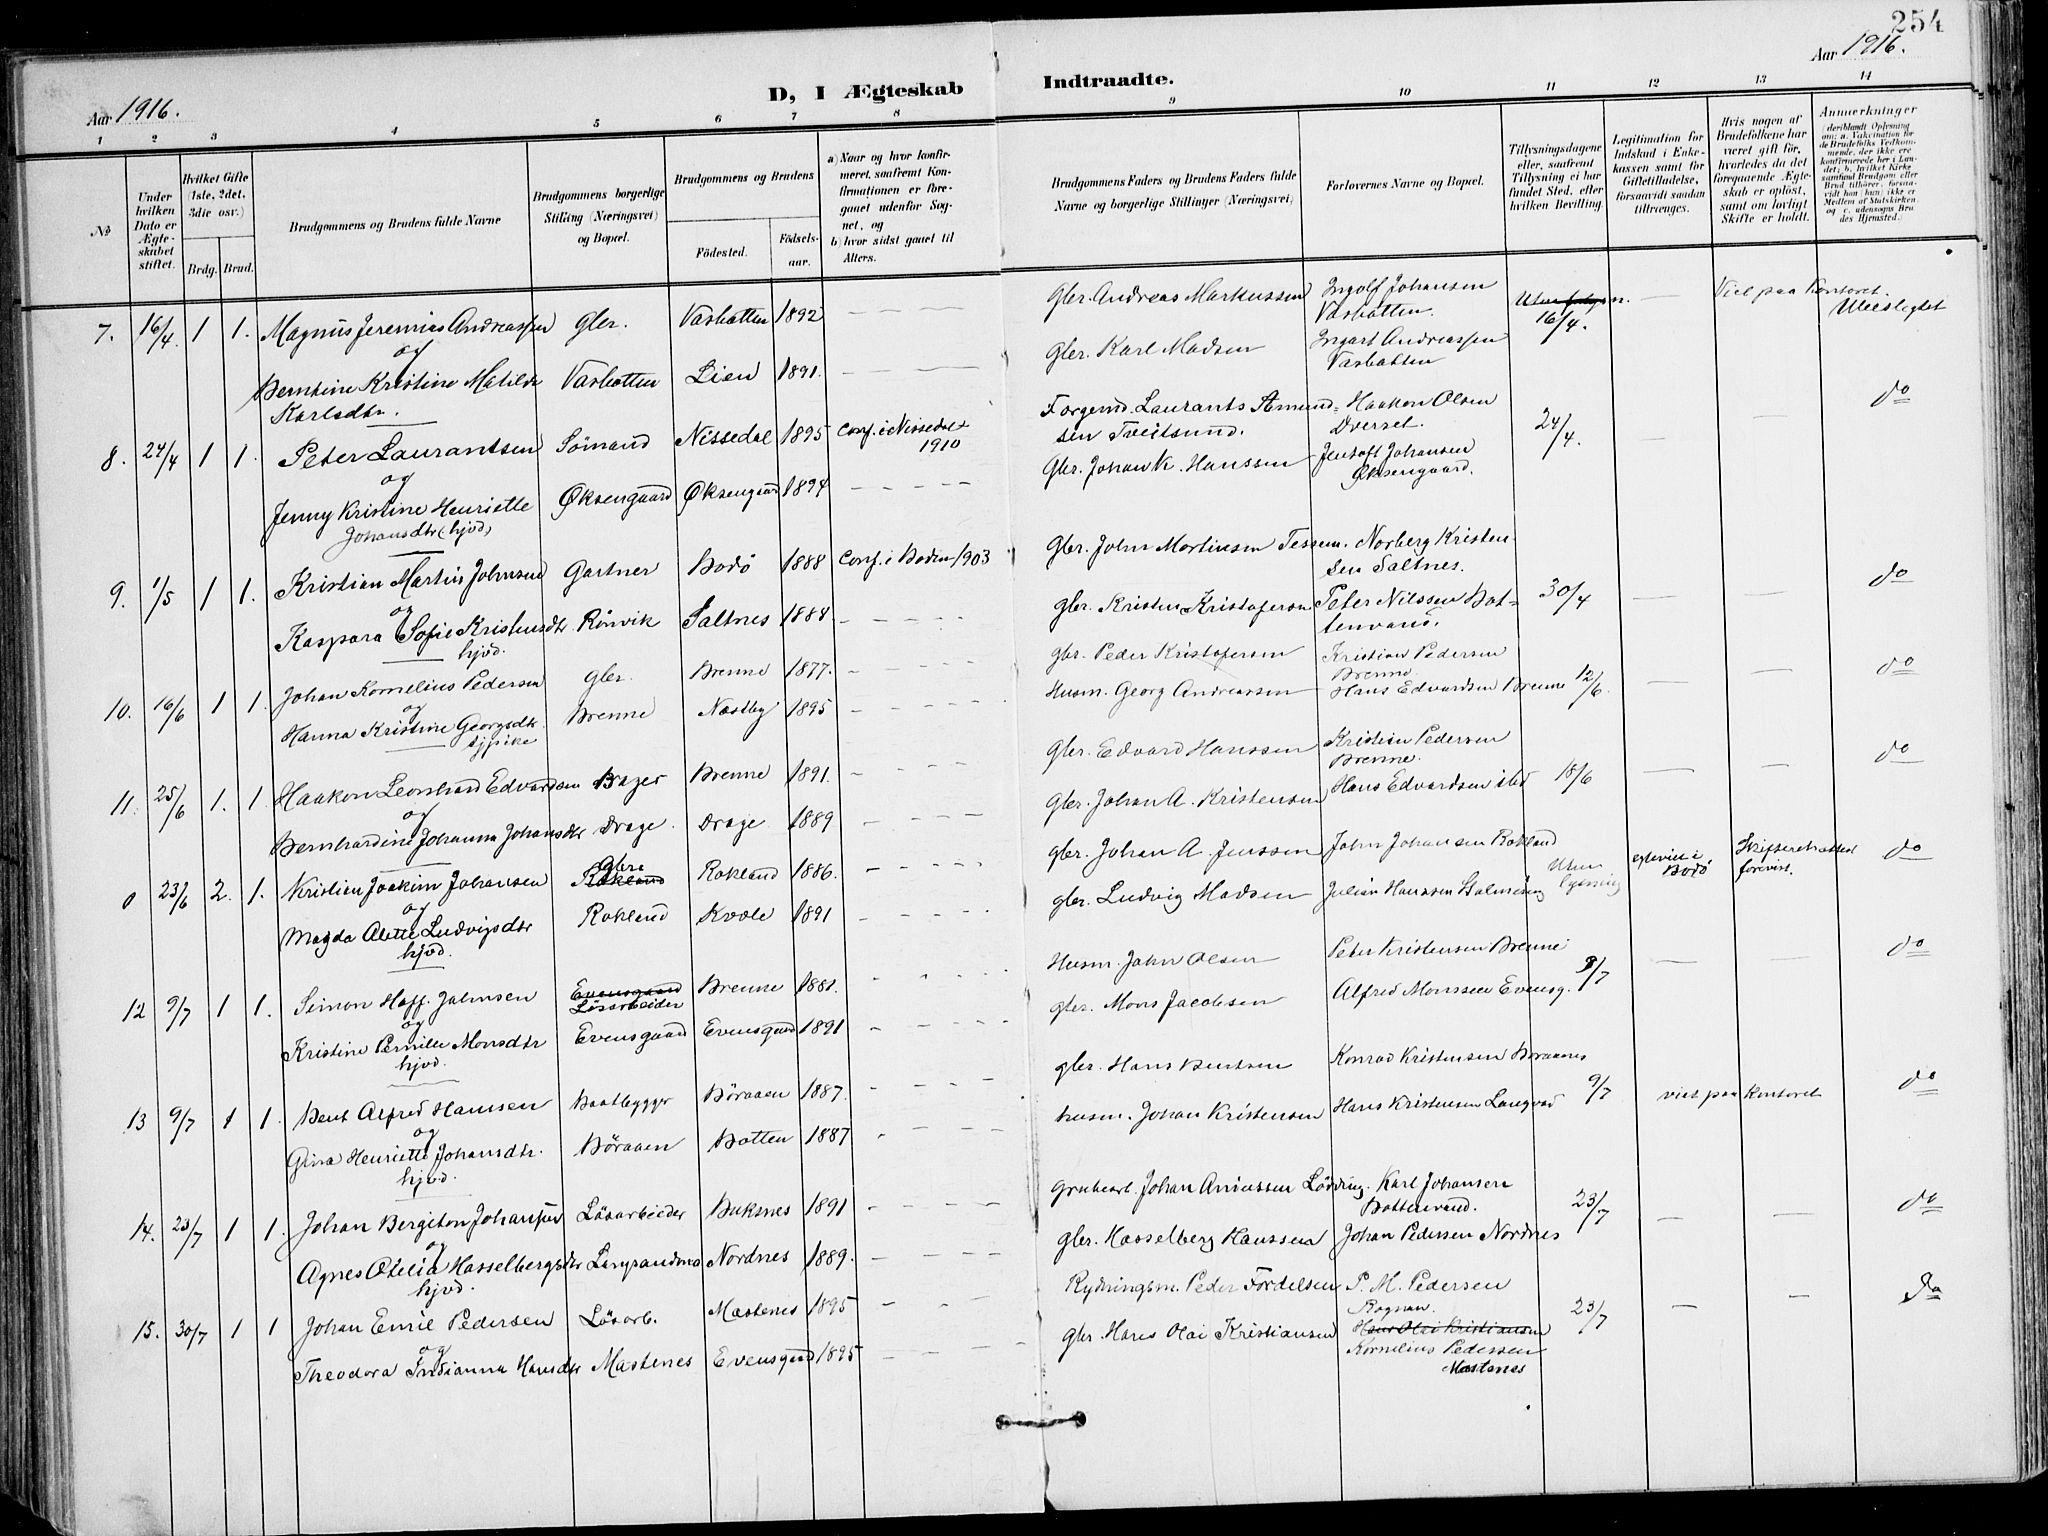 254
Aar 1916.
Aar 1916.
D, I Ægteskab Indtraadte.
1 2 3 4 5 6 7 8 9 10 11 12 13 14
No
Under hvilken Dato er Ægteskabet stiftet.
Hvilket Gifte (1ste, 2det, 3die osv.)
Brdg. Brud.
Brudgommens og Brudens fulde Navne
Brudgommens borgerlige Stilling (Næringsvei) og Bopæl.
Brudgommens og Brudens
Födested.
Födsels-aar.
a) Naar og hvor konfirmeret, saafremt Konfirmationen er foregaaet udenfor Sognet, og
b) hvor sidst gaaet til Alters.
Brudgommens Faders og Brudens Faders fulde Navne og borgerlige Stillinger (Næringsvei)
Forlovernes Navne og Bopæl.
Tillysningsdagene eller, saafremt Tillysning ei har fundet Sted, efter hvilken Bevilling.
Legitimation for Indskud i Enkekassen samt for Giftetilladelse, forsaavidt saadan tiltrænges.
Hvis nogen af Brudefolkene har været gift før, hvorledes da det foregaaende Ægteskab er opløst, samt om lovligt Skifte er holdt.
Anmerkninger
(deriblandt Oplysning om: a. Vakcination for de Brudefolks Vedkommende, der ikke ere konfirmerede her i Landet; b. hvilket Kirkesamfund Brudgom eller Brud tilhører, forsaavidt han (hun) ikke er Medlem af Statskirken og c. udensogns Brudes Hjemsted.
7. 16/4 1 1. Magnus Jeremias Andreassen Gbr. Vasbotten 1892 Gbr. Andreas Markussen Ingolf Johansen Vasbotten. 16/4. Viet paa Kontoret. Ubeslegtet
og
Berntine Kristine Matilde Karlsdtr. Vasbotten Lien 1891. Gbr. Karl Madsen Ingart Andreassen Vasbotten
8. 24/4 1 1. Peter Laurantsen Sömand Nissedal 1895 Conf. i Nissedal 1910 Forgemd. Laurants Amundsen Tveitsund. Haakon Olsen Dverset. 24/4. do
og
Jenny Kristine Henriette Johansdtr (hjvd) Øksengaard Øksengaard 1894 Gbr. Johan K. Hanssen Jentoft Johansen Øksengaard.
9. 1/5 1 1. Kristian Martin Johnsen Gartner Bodö 1888 Conf. i Bodin 1903 Gbr. John Mortinsen Tessem. Norberg Kristensen Saltnes. 30/4 do
og
Kaspara Sofie Kristensdtr. hjvd. Rönvik Saltnes 1888. gbr. Kristen Kristofersen Peter Nilssen Botnenvand.
10. 16/6 1 1. Johan Kornelius Pedersen gbr. Brenne 1877. gbr. Peder Kristofersen Kristian Pedersen Brenne. 12/6. do
og
Hanna Kristine Georgsdtr. tjpike Brenne Næstby 1895 Husm. Georg Andreassen Hans Edvardsen Brenne
11. 25/6 1. 1. Haakon Leonhard Edvardsen Bager Brenne 1891. gbr. Edvard Hanssen Kristian Pedersen Brenne. 18/6 do
og
Bernhardine Johanna Johansdtr Drage. Drage 1889 gbr. Johan A. Kristensen Hans Edvardsen ibd
0 23/6 2. 1. Kristian Joakim Johansen gbr. Rokland 1886. gbr. Johan A. Jenssen John Johansen Rokland Uten lysning egteviet i Bodö Skifteretsattest forevist. do
og
Magda Alette Ludvigsdtr hjvd. Rokland Kvæle 1891 gbr. Ludvig Madsen Julian Hanssen
12 9/7 1 1. Simon Hoff Johnsen Evensgaard Lösarbeider Brenne 1881. Husm. John Olsen Peter Kristensen Brenne 9/7 do
og
Kristine Pernille Monsdtr hjvd. Evensgaard Evensgaard 1891 gbr. Mons Jacobsen Alfred Monssen Evensg.
13 9/7 1 1. Bent Alfred Hansen Baatbygger Böraaen 1887. gbr. Hans Bentsen Konrad Kristensen Böraaen 9/7 viet paa Kontoret do
og
Gina Henriette Johansdtr. hjvd. Böraaen Botten 1887 husm. Johan Kristensen Hans Kristensen Langvad
14. 23/7 1 1. Johan Bergiton Johansen Lösarbeider Buksnes 1891 Grubearb. Johan Aniassen Löding. Karl Johansen Bottenvand. 23/7 do
og
Agnes Otelia Hasselbergsdtr hjvd. Langsandmo Nordnes 1889. gbr. Hasselberg Hanssen Johan Pedersen Nordnes
15. 30/7 1 1 Johan Emil Pedersen Lösarb. Mastenes 1895 Rydningsm. Peder Fordelsen P. M. Pedersen Rognan. 23/7 do
og
Theodora Indianna Hansdtr Mastenes Evensgaard 1895 gbr Hans Olai Kristiansen Hans Olai Kristiansen
Kornelius Pedersen Mastenes